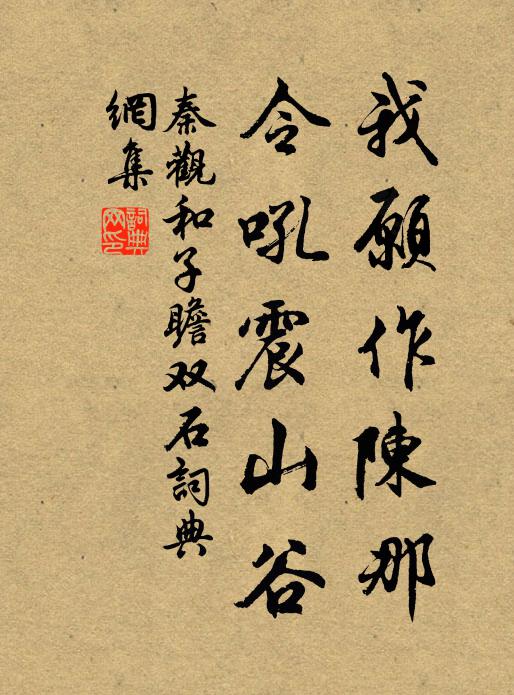 我願作陳那
令吼震山谷
秦觀和子瞻双石詞典
網集
詞典網印